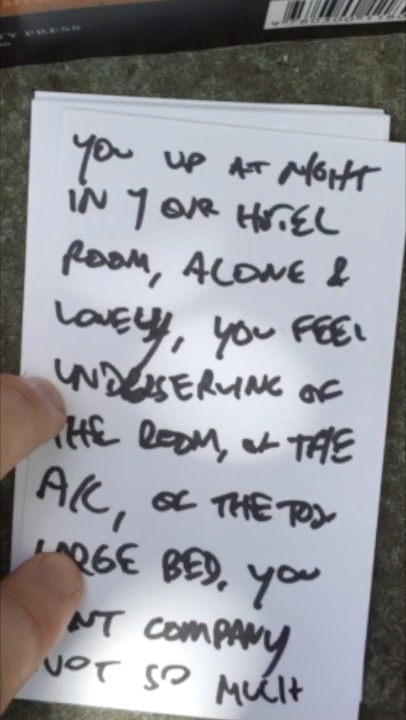 Y PRESS
YOU UP AT NIGHT
IN YOUR HOTEL
ROOM, ALONE &
LONELY, YOU FEEL
UNDESERVING OF
THE ROOM, OF THE
A/C, OF THE TOO
LARGE BED, YOU
NT COMPANY
NOT SO MUCH